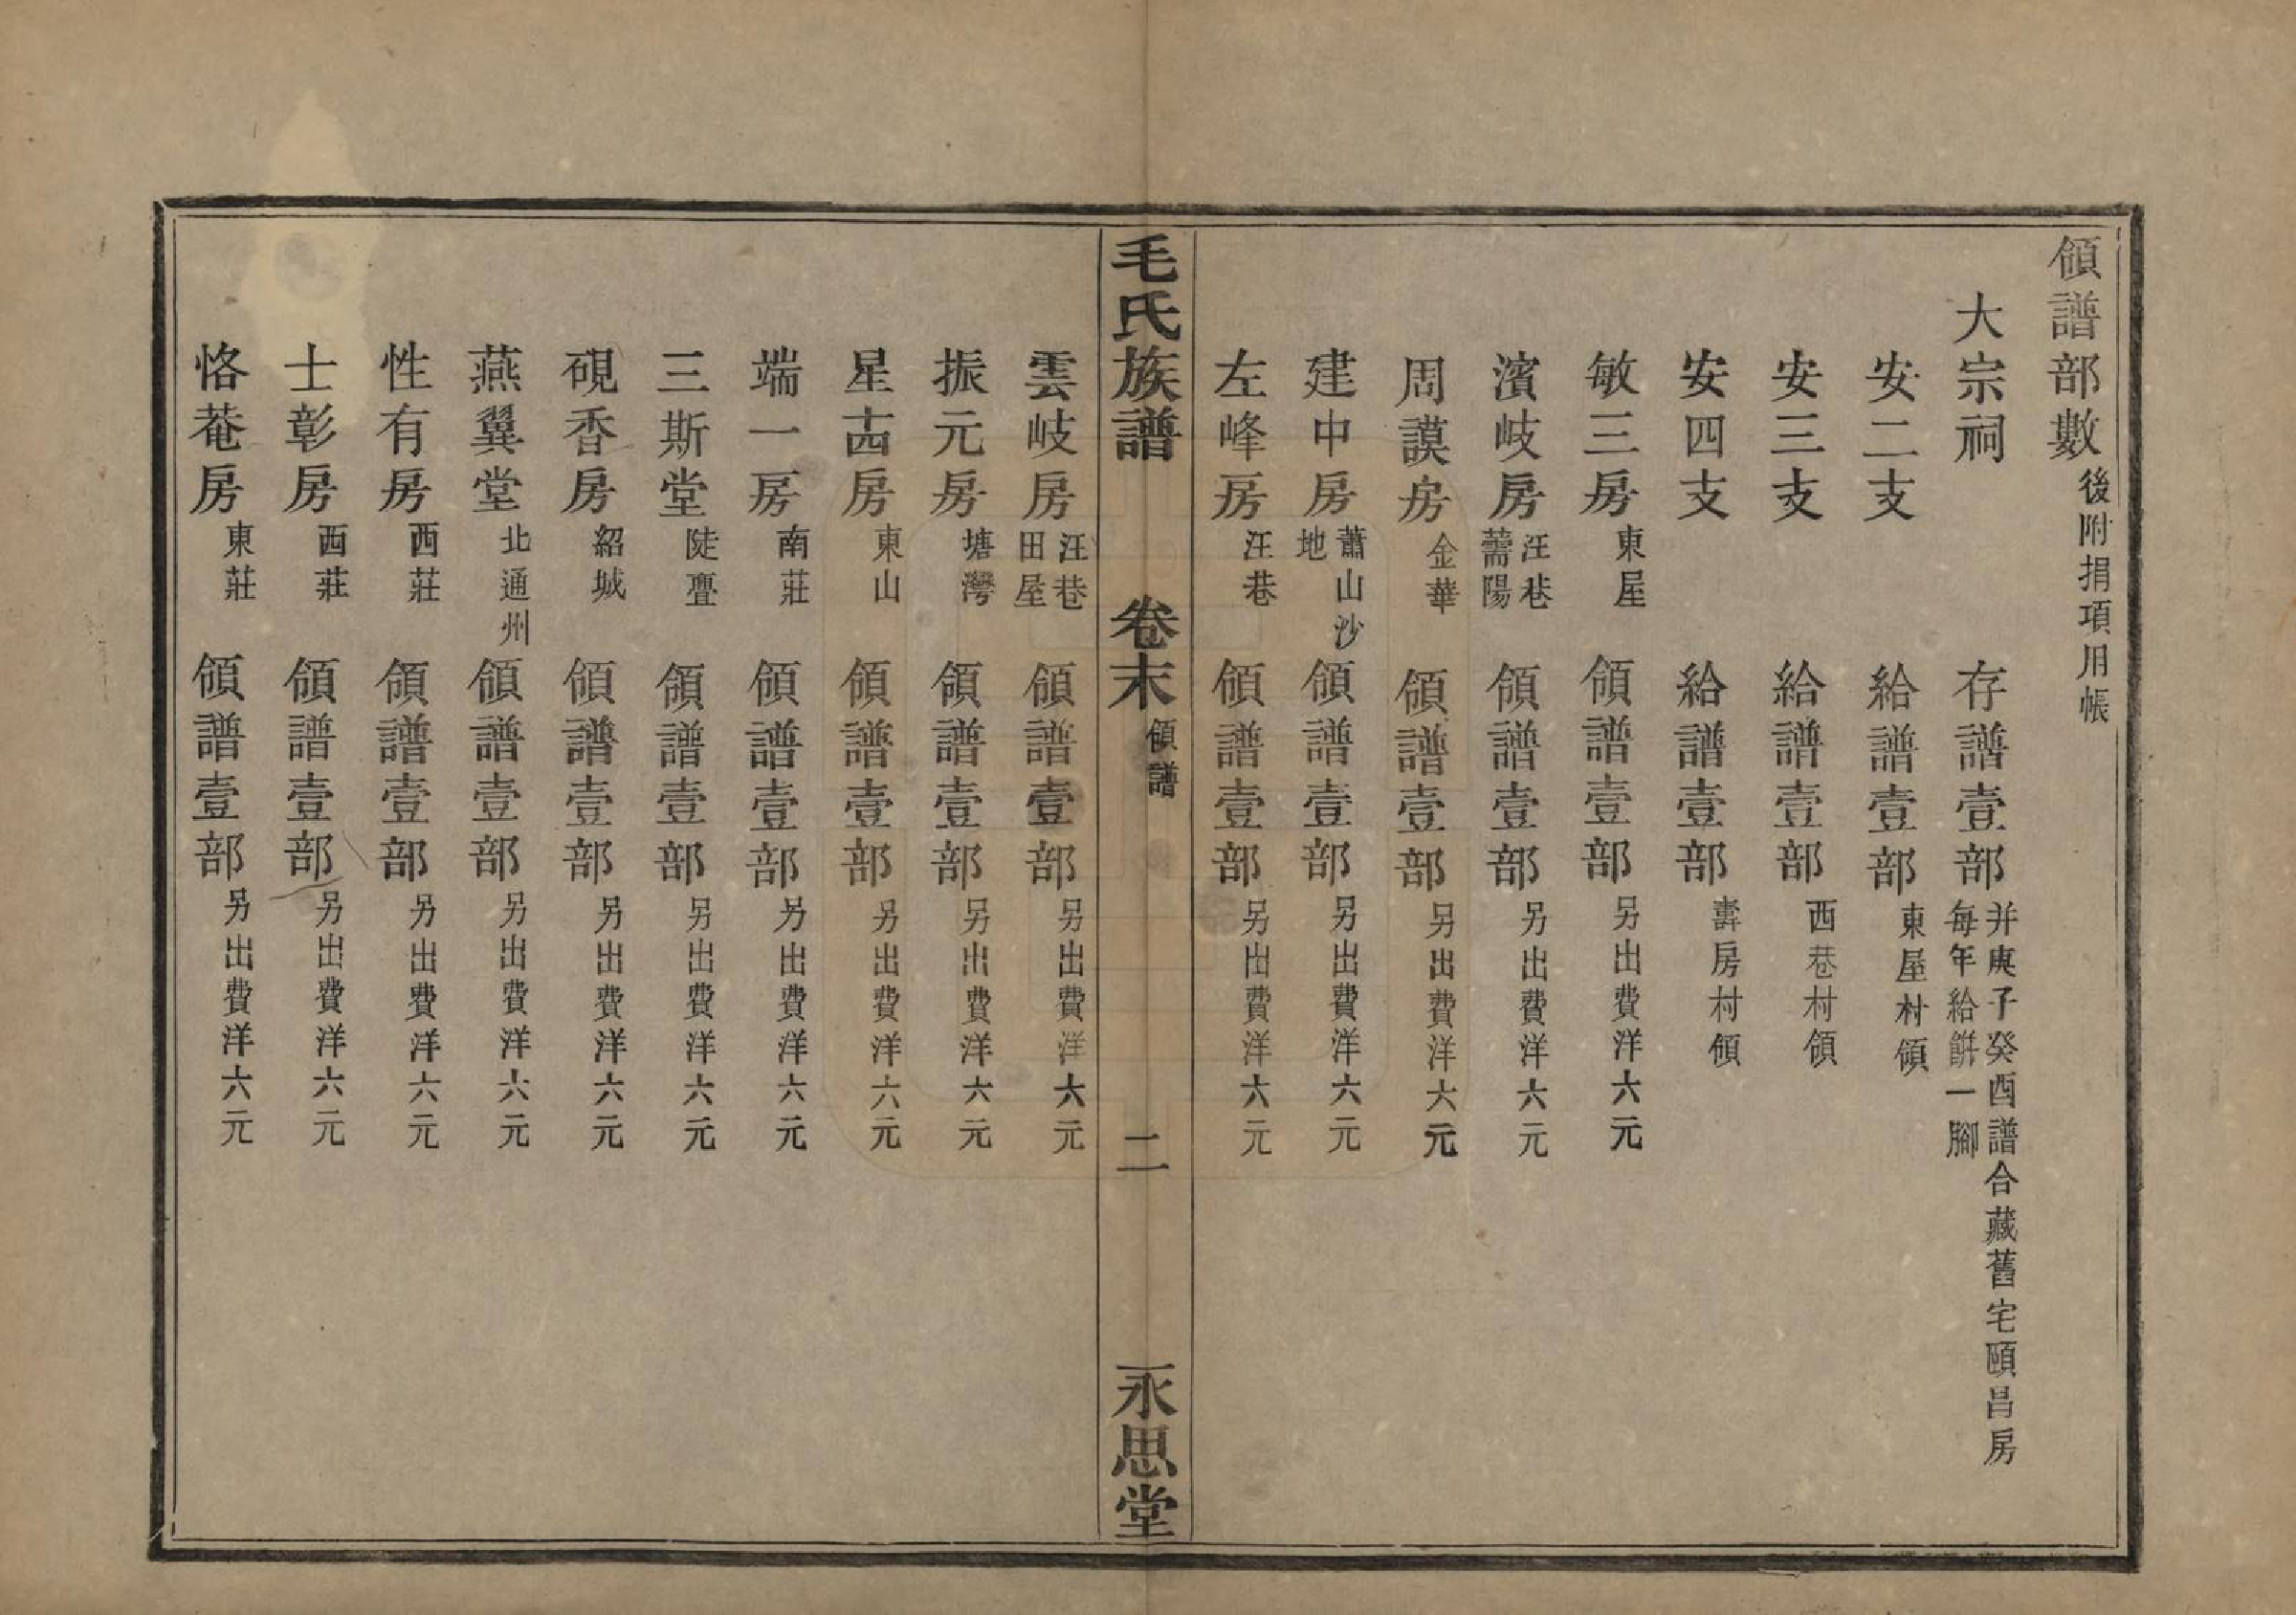 領譜部數 後附捐項用帳
大宗祠 存譜壹部 并庚子癸酉譜合藏舊宅頤昌房 每年給餅一腳
安二支 給譜壹部 東屋村領
安三支 給譜壹部 西巷村領
安四支 給譜壹部 壽房村領
敏三房 東屋 領譜壹部 另出費洋六元
濱岐房 汪巷 薷陽 領譜壹部 另出費洋六元
周謨房 金華 領譜壹部 另出費洋六元
建中房 蕭山沙地 領譜壹部 另出費洋六元
左峰房 汪巷 領譜壹部 另出費洋六元
毛氏族譜 卷末 領譜 二 永思堂
雲岐房 汪巷 田屋 領譜壹部 另出費洋六元
振元房 塘灣 領譜壹部 另出費洋六元
星吉房 東山 領譜壹部 另出費洋六元
端一房 南莊 領譜壹部 另出費洋六元
三斯堂 陡亹 領譜壹部 另出費洋六元
硯香房 紹城 領譜壹部 另出費洋六元
燕翼堂 北通州 領譜壹部 另出費洋六元
性有房 西莊 領譜壹部 另出費洋六元
士彰房 西莊 領譜壹部 另出費洋六元
恪菴房 東莊 領譜壹部 另出費洋六元